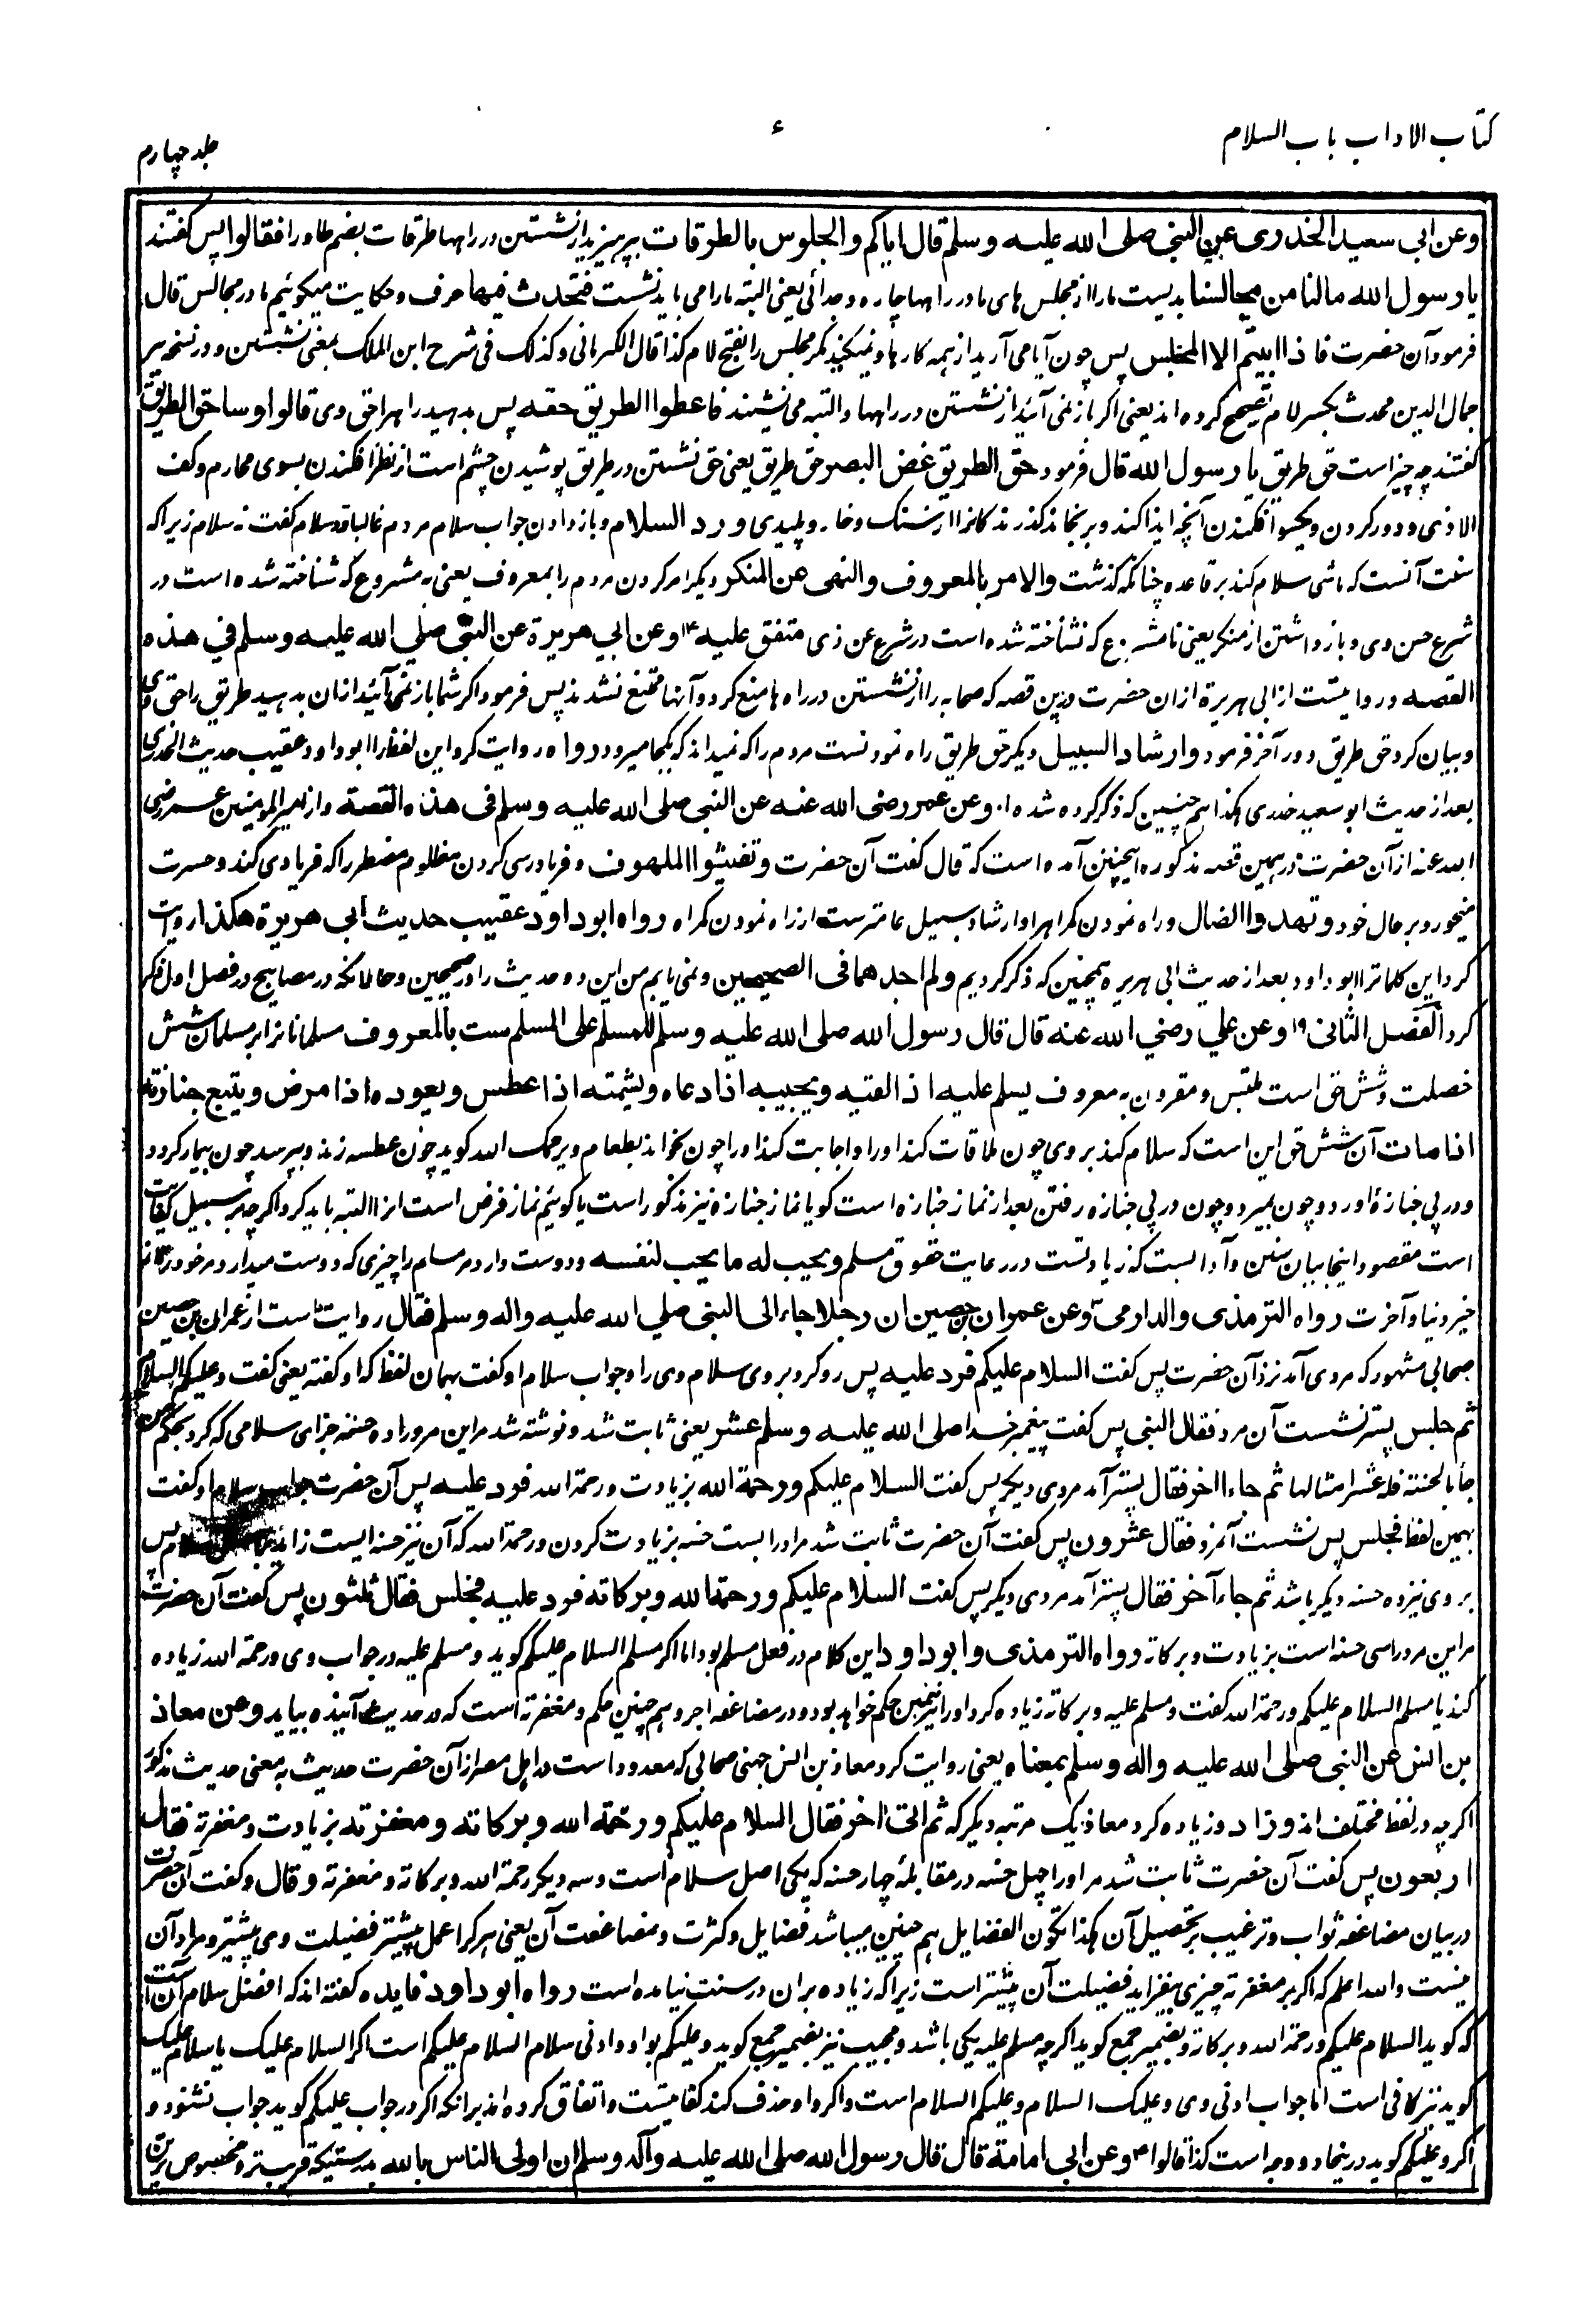 كتاب الاداب باب السلام
۶
جلد چهارم
وعن ابی سعید الخدری عن النبی صلی الله علیه وسلم قال ایاکم والجلوس بالطرقات بپرهیزید از نشستن در راهها طرقات بضم طا و را فقالوا پس گفتند
یا رسول الله مالنا من مجالسنا بد نیست ما را از مجلس های ما در راهها چاره و جدائی یعنی البته ما را می باید نشست نتحدث فیها حرف و حکایت میکوئیم ما در مجالس قال
فرمود آن حضرت فاذا ابیتم الا المجلس پس چون آبا می آرید از همه کارها و نمیکنید مگر مجلس را بفتح لام کذا قال الکرمانی و کذلک فی شرح ابن الملک بمعنی نشستن و در نسخه میر
جمال الدین محدث بکسر لام تصحیح کرده اند یعنی اکر باز نمی آئید از نشستن در راهها و البته می نشیند فاعطوا الطریق حقه پس بدهید راه را حق وی قالوا وما حق الطریق
کفتند چه چیز است حق طریق یا رسول الله قال فرمود حق الطریق غض البصر حق طریق یعنی حق نشستن در طریق پوشیدن چشم است از نظر افکندن بسوی محارم وکف
الاذی و دور کردن و یکسو افکندن آنچه ایذا کند و برنجاند کذرندکانرا از سنک و خار و پلیدی و رد السلام و باز دادن جواب سلام مردم غالبا رد سلام کفت نه سلام زیرا که
سنت آنست که ماشی سلام کند بر قاعده چنانکه گذشت والامر بالمعروف والنهی عن المنکر دیکر امر کردن مردم را بمعروف یعنی به مشروع که شناخته شده است در
شرع حسن وی و باز داشتن از منکر یعنی نامشروع که نشناخته شده است در شرع عن ذی متفق علیه ۱۲ وعن ابی هریرة عن النبی صلی الله علیه وسلم فی هذه
القصه و روایتست از ابی هریرة از ان حضرت درین قصه که صحابه را از نشستن در راه ها منع کرد و آنها ممتنع نشدند پس فرمود اکر شما باز نمی آئید از ان بدهید طریق را حق وی
و بیان کرد حق طریق و در آخر فرمود وارشاد السبیل دیکر حق طریق راه نمودنست مردم را که نمیداند که بکجا میرود رواه روایت کرد این لفظ را ابو داود عقیب حدیث الخدری
بعد از حدیث ابو سعید خدری هکذا هم چنین که ذکر کرده شده ا۰ وعن عمر رضی الله عنه عن النبی صلی الله علیه وسلم فی هذه القصة و از امیر المومنین عمر رضی
الله عنه از آن حضرت در همین قصه مذکوره اینچنین آمده است که قال کفت آن حضرت وتغیثوا الملهوف و فریادرسی کردن مظلوم مضطر را که فریادی کند و حسرت
میخورد بر حال خود وتهدوا الضال و راه نمودن گمراه را و ارشاد سبیل عامترست از راه نمودن گمراه رواه ابوداود عقیب حدیث ابی هریرة هکذا روایت
کرد این کلماترا ابوداود بعد از حدیث ابی هریره همچنین که ذکر کردیم ولم اجدهما فی الصحیحین و نمی یابم من این دو حدیث را در صحیحین و حالانکه در مصابیح در فصل اول ذکر
کرد الفصل الثانی ۱۹ وعن علی رضی الله عنه قال قال رسول الله صلی الله علیه وسلم للمسلم علی المسلم ست بالمعروف مسلمانانرا بر مسلمان شش
خصلت و شش حق است ملتبس و مقرون به معروف یسلم علیه اذا لقیه ویجیبه اذا دعاه ویشمته اذا عطس ویعوده اذا مرض ویتبع جنازته
اذا مات آن شش حق این است که سلام کند بر وی چون ملاقات کند او را و اجابت کند او را چون بخواند بطعام و یرحمک الله کوید چون عطسه زند و بپرسد چون بیمار کردد
و در پی جنازهٔ او رود چون بمیرد و چون در پی جنازه رفتن بعد از نماز جنازه است کویا نماز جنازه نیز مذکور است یا کوئیم نماز فرض است انرا البته باید کرد اکرچه بر سبیل کفایت
است مقصود اینجا بیان سنن و آدابست که زیادتست در رعایت حقوق مسلم ویحب له ما یحب لنفسه و دوست دارد مر مسلم را چیزی که دوست میدارد مر خود را از
خیر دنیا و آخرت رواه الترمذی والدارمی وعن عمران بن حصین ان رجلا جاء الی النبی صلی الله علیه واله وسلم فقال روایت است از عمران بن حصین
صحابی مشهور که مردی آمد نزد آن حضرت پس کفت السلام علیکم فرد علیه پس رد کرد بر وی سلام وی را و جواب سلام او کفت بهمان لفظ که او گفته یعنی کفت وعلیکم السلام
ثم جلس پستر نشست آن مرد فقال النبی پس کفت پیغمبر خدا صلی الله علیه وسلم عشر یعنی ثابت شد و نوشته شد مر این مرد را ده حسنه جزای سلامی که کرد بحکم من
جاء بالحسنة فله عشر امثالها ثم جاء اخر فقال پستر آمد مردی دیکر پس کفت السلام علیکم ورحمة الله بزیادت ورحمة الله فرد علیه پس آن حضرت جواب سلام او کفت
بهمین لفظ فجلس پس نشست آنمرد فقال عشرون پس کفت آن حضرت ثابت شد مر او را بست حسنه بزیادت کردن ورحمة الله که آن نیز حسنه ایست
بر وی نیز ده حسنه دیکر باشد ثم جاء آخر فقال پستر آمد مردی دیکر پس کفت السلام علیکم ورحمة الله وبرکاته فرد علیه فجلس فقال ثلثون پس کفت آن حضرت
مر این مرد را سی حسنه است بزیادت وبرکاته رواه الترمذی وابوداود این کلام در فعل مسلم بود اما اکر مسلم السلام علیکم کوید و مسلم علیه در جواب وی ورحمة الله زیاده
کند یا مسلم السلام علیکم ورحمة الله کفت و مسلم علیه وبرکاته زیاده کرد او را نیز همین حکم خواهد بود و در مضاعفه اجر و هم چنین حکم ومغفرته است که در حدیث آینده بیاید وعن معاذ
بن انس عن النبی صلی الله علیه واله وسلم بمعناه یعنی روایت کرد معاذ بن انس جهنی صحابی که معدود است در اهل مصر از آن حضرت حدیث به معنی حدیث مذکور
اکرچه در لفظ مختلف اند وزاد و زیاده کرد معاذ یک مرتبه دیکر که ثم اتی اخر فقال السلام علیکم ورحمة الله وبرکاته ومغفرته بزیادت ومغفرته فقال
اربعون پس کفت آن حضرت ثابت شد مر او را چهل حسنه در مقابلهٔ چهار حسنه که یکی اصل سلام است و سه دیکر رحمة الله وبرکاته ومغفرته وقال و کفت آن حضرت
در بیان مضاعفه ثواب و ترغیب بر تحصیل آن هکذا تکون الفضایل هم چنین میباشد فضایل و کثرت و مضاعفت آن یعنی هر کرا عمل بیشتر فضیلت وی بیشتر و مراد آن
نیست والله اعلم که اکر بر مغفرته چیزی بیفزاید فضیلت آن بیشتر است زیرا که زیاده بران در سنت نیامده است رواه ابوداود فایده کفته اند که افضل سلام آن است
که کوید السلام علیکم ورحمة الله وبرکاته و بضمیر جمع کوید اکرچه مسلم علیه یکی باشد و مجیب نیز بضمیر جمع کوید وعلیکم بواو و ادنی سلام السلام علیکم است اکر السلام علیک یا سلام علیک
کوید نیز کافی است اما جواب ادنی وی وعلیک السلام وعلیکم السلام است و اکر واو حذف کند کفایتست و اتفاق کرده اند برانکه اکر در جواب علیکم کوید جواب نشود و
اکر وعلیکم کوید در ینجا دو وجه است کذا قالوا وعن ابی امامة قال قال رسول الله صلی الله علیه وآله وسلم ان اولی الناس بالله بدرستیکه قریب تر و مخصوص ترین